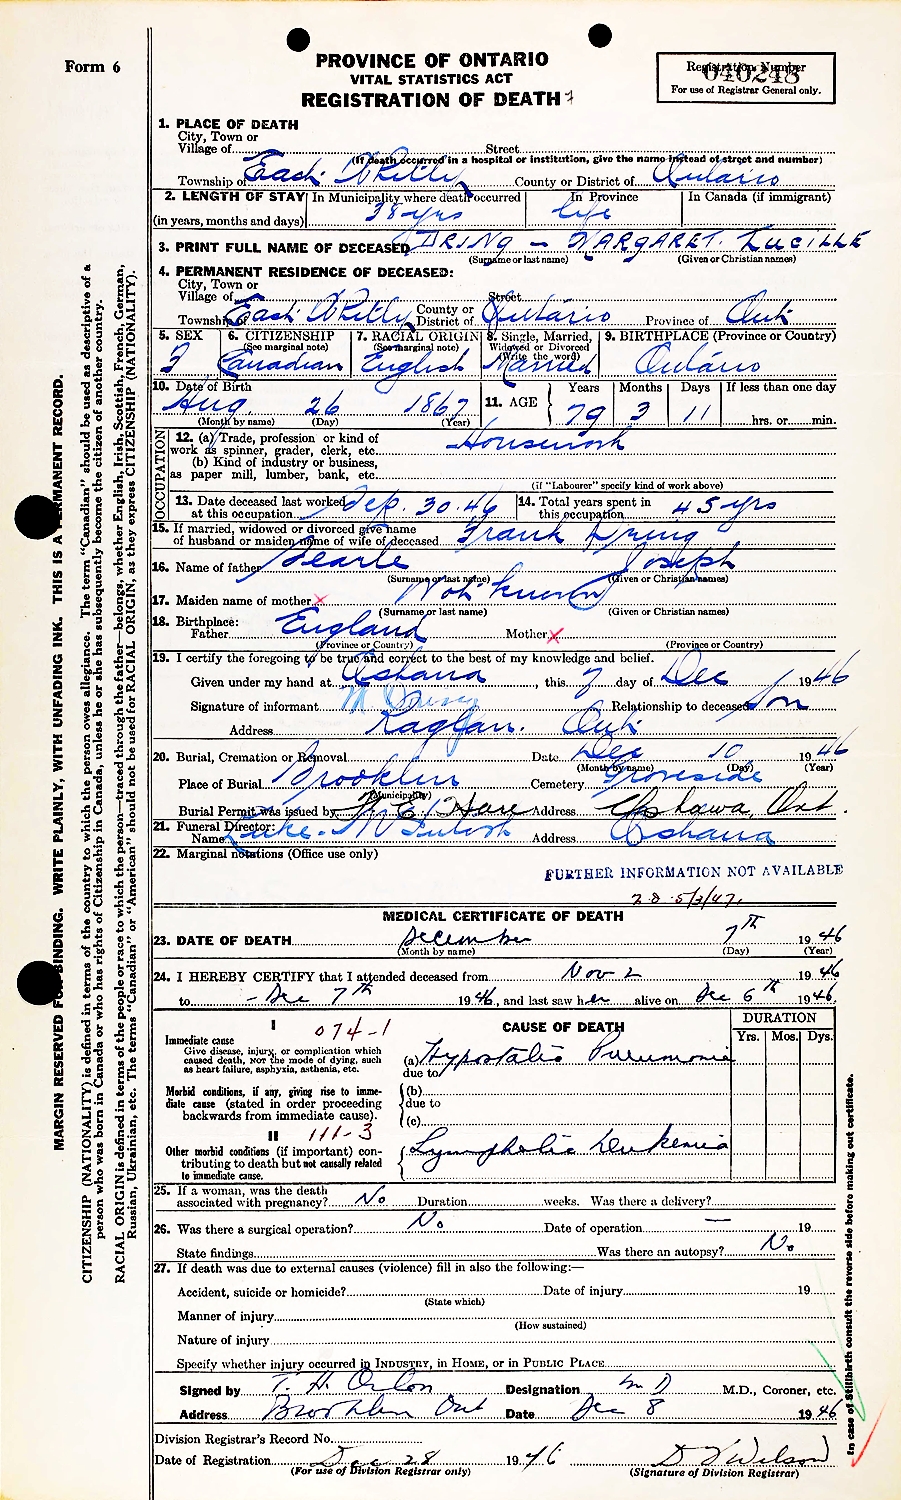 Form 6
PROVINCE OF ONTARIO
VITAL STATISTICS ACT
REGISTRATION OF DEATH
Registration Number
040248
For use of Registrar General only.
1. PLACE OF DEATH
City, Town or
Village of Street
(If death occurred in a hospital or institution, give the name instead of street and number)
Township of East Whitby County or District of Ontario
2. LENGTH OF STAY In Municipality where death occurred In Province In Canada (if immigrant)
(in years, months and days) 38 yrs life
3. PRINT FULL NAME OF DECEASED DRING - MARGARET. LUCILLE
(Surname or last name) (Given or Christian names)
4. PERMANENT RESIDENCE OF DECEASED:
City, Town or
Village of Street
Township of East Whitby County or District of Ontario Province of Ont.
5. SEX 6. CITIZENSHIP 7. RACIAL ORIGIN 8. Single, Married, Widowed or Divorced 9. BIRTHPLACE (Province or Country)
(See marginal note) (See marginal note) (Write the word)
F Canadian English Married Ontario
10. Date of Birth 11. AGE Years Months Days If less than one day
Aug. 26 1867 79 3 11 hrs. or min.
(Month by name) (Day) (Year)
OCCUPATION
12. (a) Trade, profession or kind of
work as spinner, grader, clerk, etc. Housework
(b) Kind of industry or business,
as paper mill, lumber, bank, etc.
(if "Labourer" specify kind of work above)
13. Date deceased last worked at this occupation Sep. 30. 46 14. Total years spent in this occupation 45 yrs
15. If married, widowed or divorced give name
of husband or maiden name of wife of deceased Frank Dring
16. Name of father Searle Joseph
(Surname or last name) (Given or Christian names)
17. Maiden name of mother x Not known
(Surname or last name) (Given or Christian names)
18. Birthplace:
Father England Mother x
(Province or Country) (Province or Country)
19. I certify the foregoing to be true and correct to the best of my knowledge and belief.
Given under my hand at Oshawa, this 7 day of Dec 1946
Signature of informant M Dring Relationship to deceased Son
Address Raglan. Ont.
20. Burial, Cremation or Removal Date Dec 10 1946
(Month by name) (Day) (Year)
Place of Burial Brooklin Cemetery Groveside
(Municipality)
Burial Permit was issued by E. Hare Address Oshawa, Ont.
21. Funeral Director:
Name Luke-McIntosh Address Oshawa
22. Marginal notations (Office use only)
FURTHER INFORMATION NOT AVAILABLE
5/3/47.
MEDICAL CERTIFICATE OF DEATH
23. DATE OF DEATH December 7th 1946
(Month by name) (Day) (Year)
24. I HEREBY CERTIFY that I attended deceased from Nov 2 1946
to - Dec 7th 1946, and last saw her alive on Dec 6th 1946.
I 074-1 CAUSE OF DEATH DURATION
Yrs. Mos. Dys.
Immediate cause
Give disease, injury, or complication which
caused death, NOT the mode of dying, such
as heart failure, asphyxia, asthenia, etc.
(a) Hypostatic Pneumonia
due to
Morbid conditions, if any, giving rise to imme-
diate cause (stated in order proceeding
backwards from immediate cause).
(b)
due to
(c)
II 111-3
Other morbid conditions (if important) con-
tributing to death but not causally related
to immediate cause.
Lymphatic Leukemia
25. If a woman, was the death
associated with pregnancy? No Duration weeks. Was there a delivery?
26. Was there a surgical operation? No Date of operation — 19
State findings Was there an autopsy? No
27. If death was due to external causes (violence) fill in also the following:—
Accident, suicide or homicide? Date of injury 19
(State which)
Manner of injury
(How sustained)
Nature of injury
Specify whether injury occurred in INDUSTRY, in HOME, or in PUBLIC PLACE
Signed by T. H. Designation M D M.D., Coroner, etc.
Address Brooklin Ont Date Dec 8 1946
Division Registrar's Record No.
Date of Registration Dec 28 1946 Wilson
(For use of Division Registrar only) (Signature of Division Registrar)
MARGIN RESERVED FOR BINDING. WRITE PLAINLY, WITH UNFADING INK. THIS IS A PERMANENT RECORD.
CITIZENSHIP (NATIONALITY) is defined in terms of the country to which the person owes allegiance. The term "Canadian" should be used as descriptive of a
person who was born in Canada or who has rights of Citizenship in Canada, unless he or she has subsequently become the citizen of another country.
RACIAL ORIGIN is defined in terms of the people or race to which the person—traced through the father—belongs, whether English, Irish, Scottish, French, German,
Russian, Ukrainian, etc. The terms "Canadian" or "American" should not be used for RACIAL ORIGIN, as they express CITIZENSHIP (NATIONALITY).
In case of Stillbirth consult the reverse side before making out certificate.